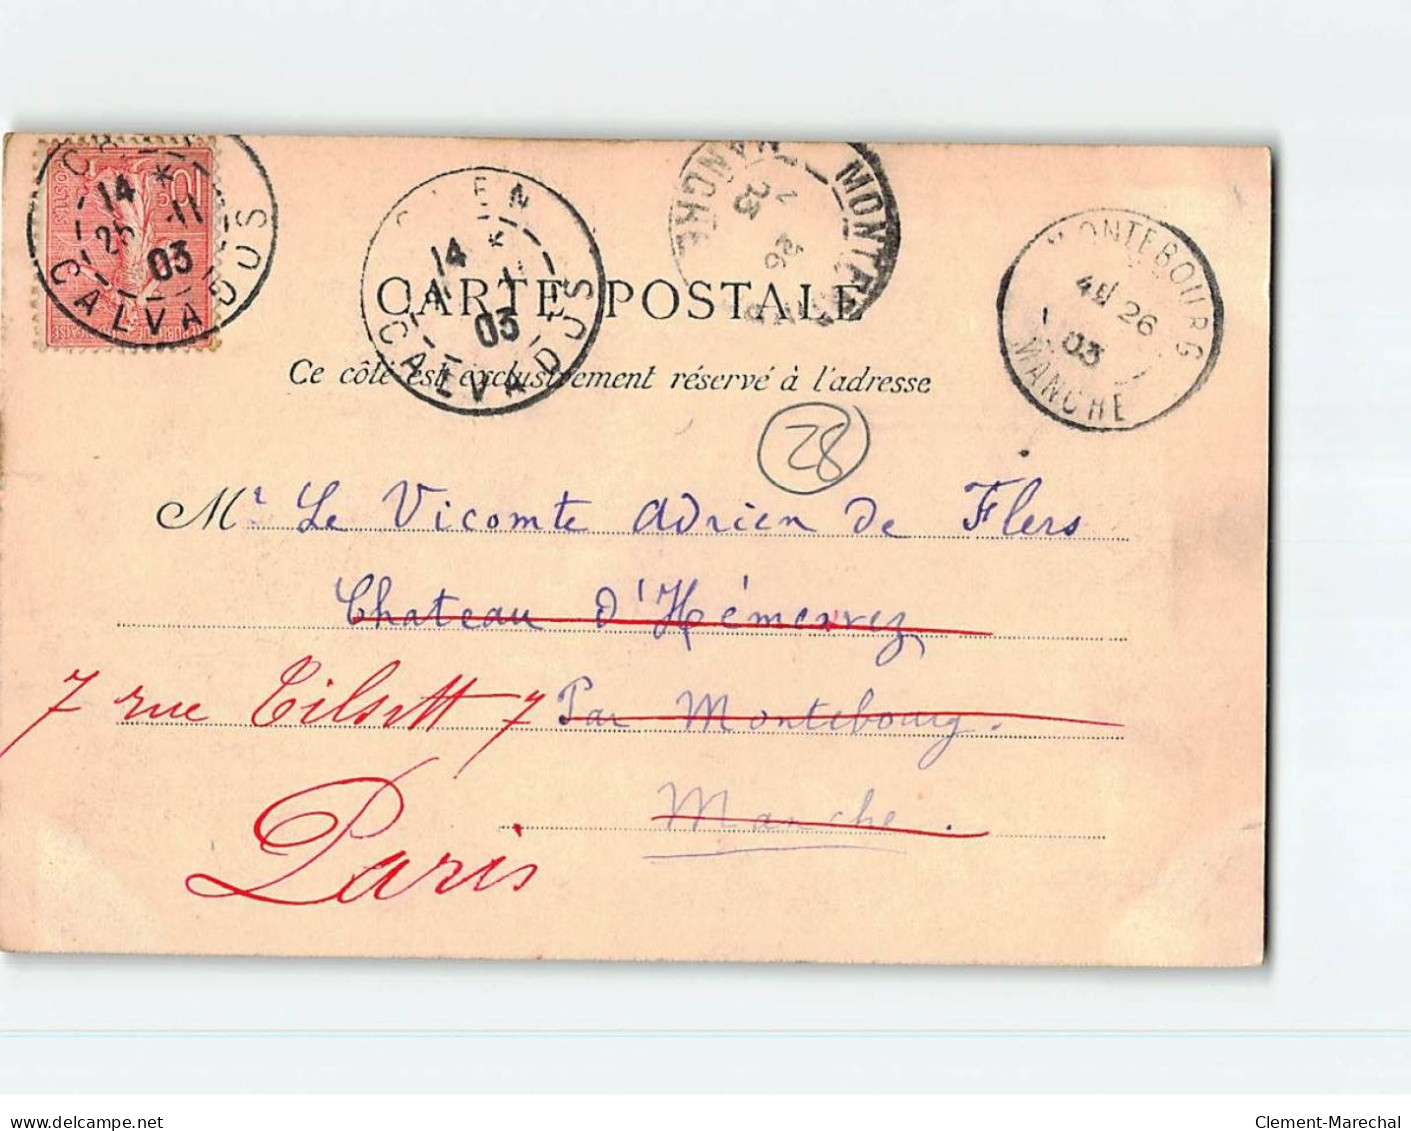 14
25 11
03
CALVADOS
14
11
03
CALVADOS
MANCHE
MONTEBOURG
26
03
MANCHE
CARTE POSTALE
Ce côté est exclusivement réservé à l'adresse
28
Mr Le Vicomte Adrien de Flers
Chateau d'Hémevez
7 rue Tilsitt 7 Par Montebourg.
Manche.
Paris
delcampe.net
Clement-Marechal